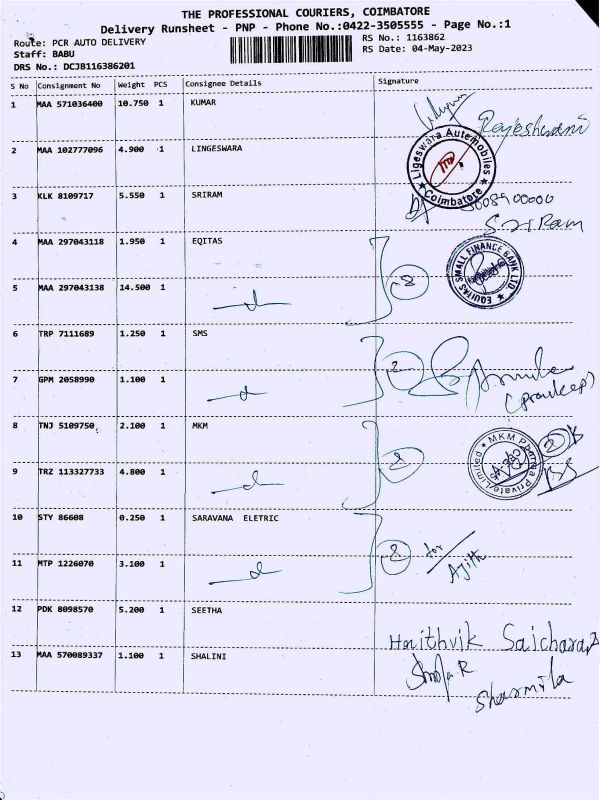 THE PROFESSIONAL COURIERS, COIMBATORE
Delivery Runsheet - PNP - Phone No.:0422-3505555 - Page No.:1
Route: PCR AUTO DELIVERY
RS No.: 1163862
Staff: BABU
RS Date: 04-May-2023
DRS No.: DCJB116386201
S No Consignment No Weight PCS Consignee Details Signature
1 MAA 571036400 10.750 1 KUMAR
Rajeshwari
2 MAA 102777096 4.900 1 LINGESWARA
Ligeswara Automobiles
Coimbatore
3 KLK 8109717 5.550 1 SRIRAM
Sri Ram
4 MAA 297043118 1.950 1 EQITAS
2
EQUITAS SMALL FINANCE BANK LTD.
5 MAA 297043138 14.500 1
6 TRP 7111689 1.250 1 SMS
2
7 GPM 2058990 1.100 1
(pradeep)
8 TNJ 5109750 2.100 1 MKM
2
MKM Pharma Private Limited
9 TRZ 113327733 4.800 1
10 STY 86608 0.250 1 SARAVANA ELETRIC
2
for
Ajith
11 MTP 1226070 3.100 1
12 PDK 8098570 5.200 1 SEETHA
Hrithvik Saicharan
13 MAA 570089337 1.100 1 SHALINI
Sharmila